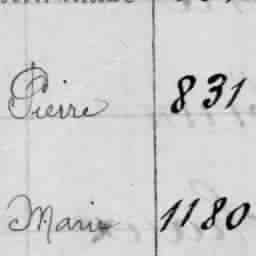 Pierre 831
Marie 1180